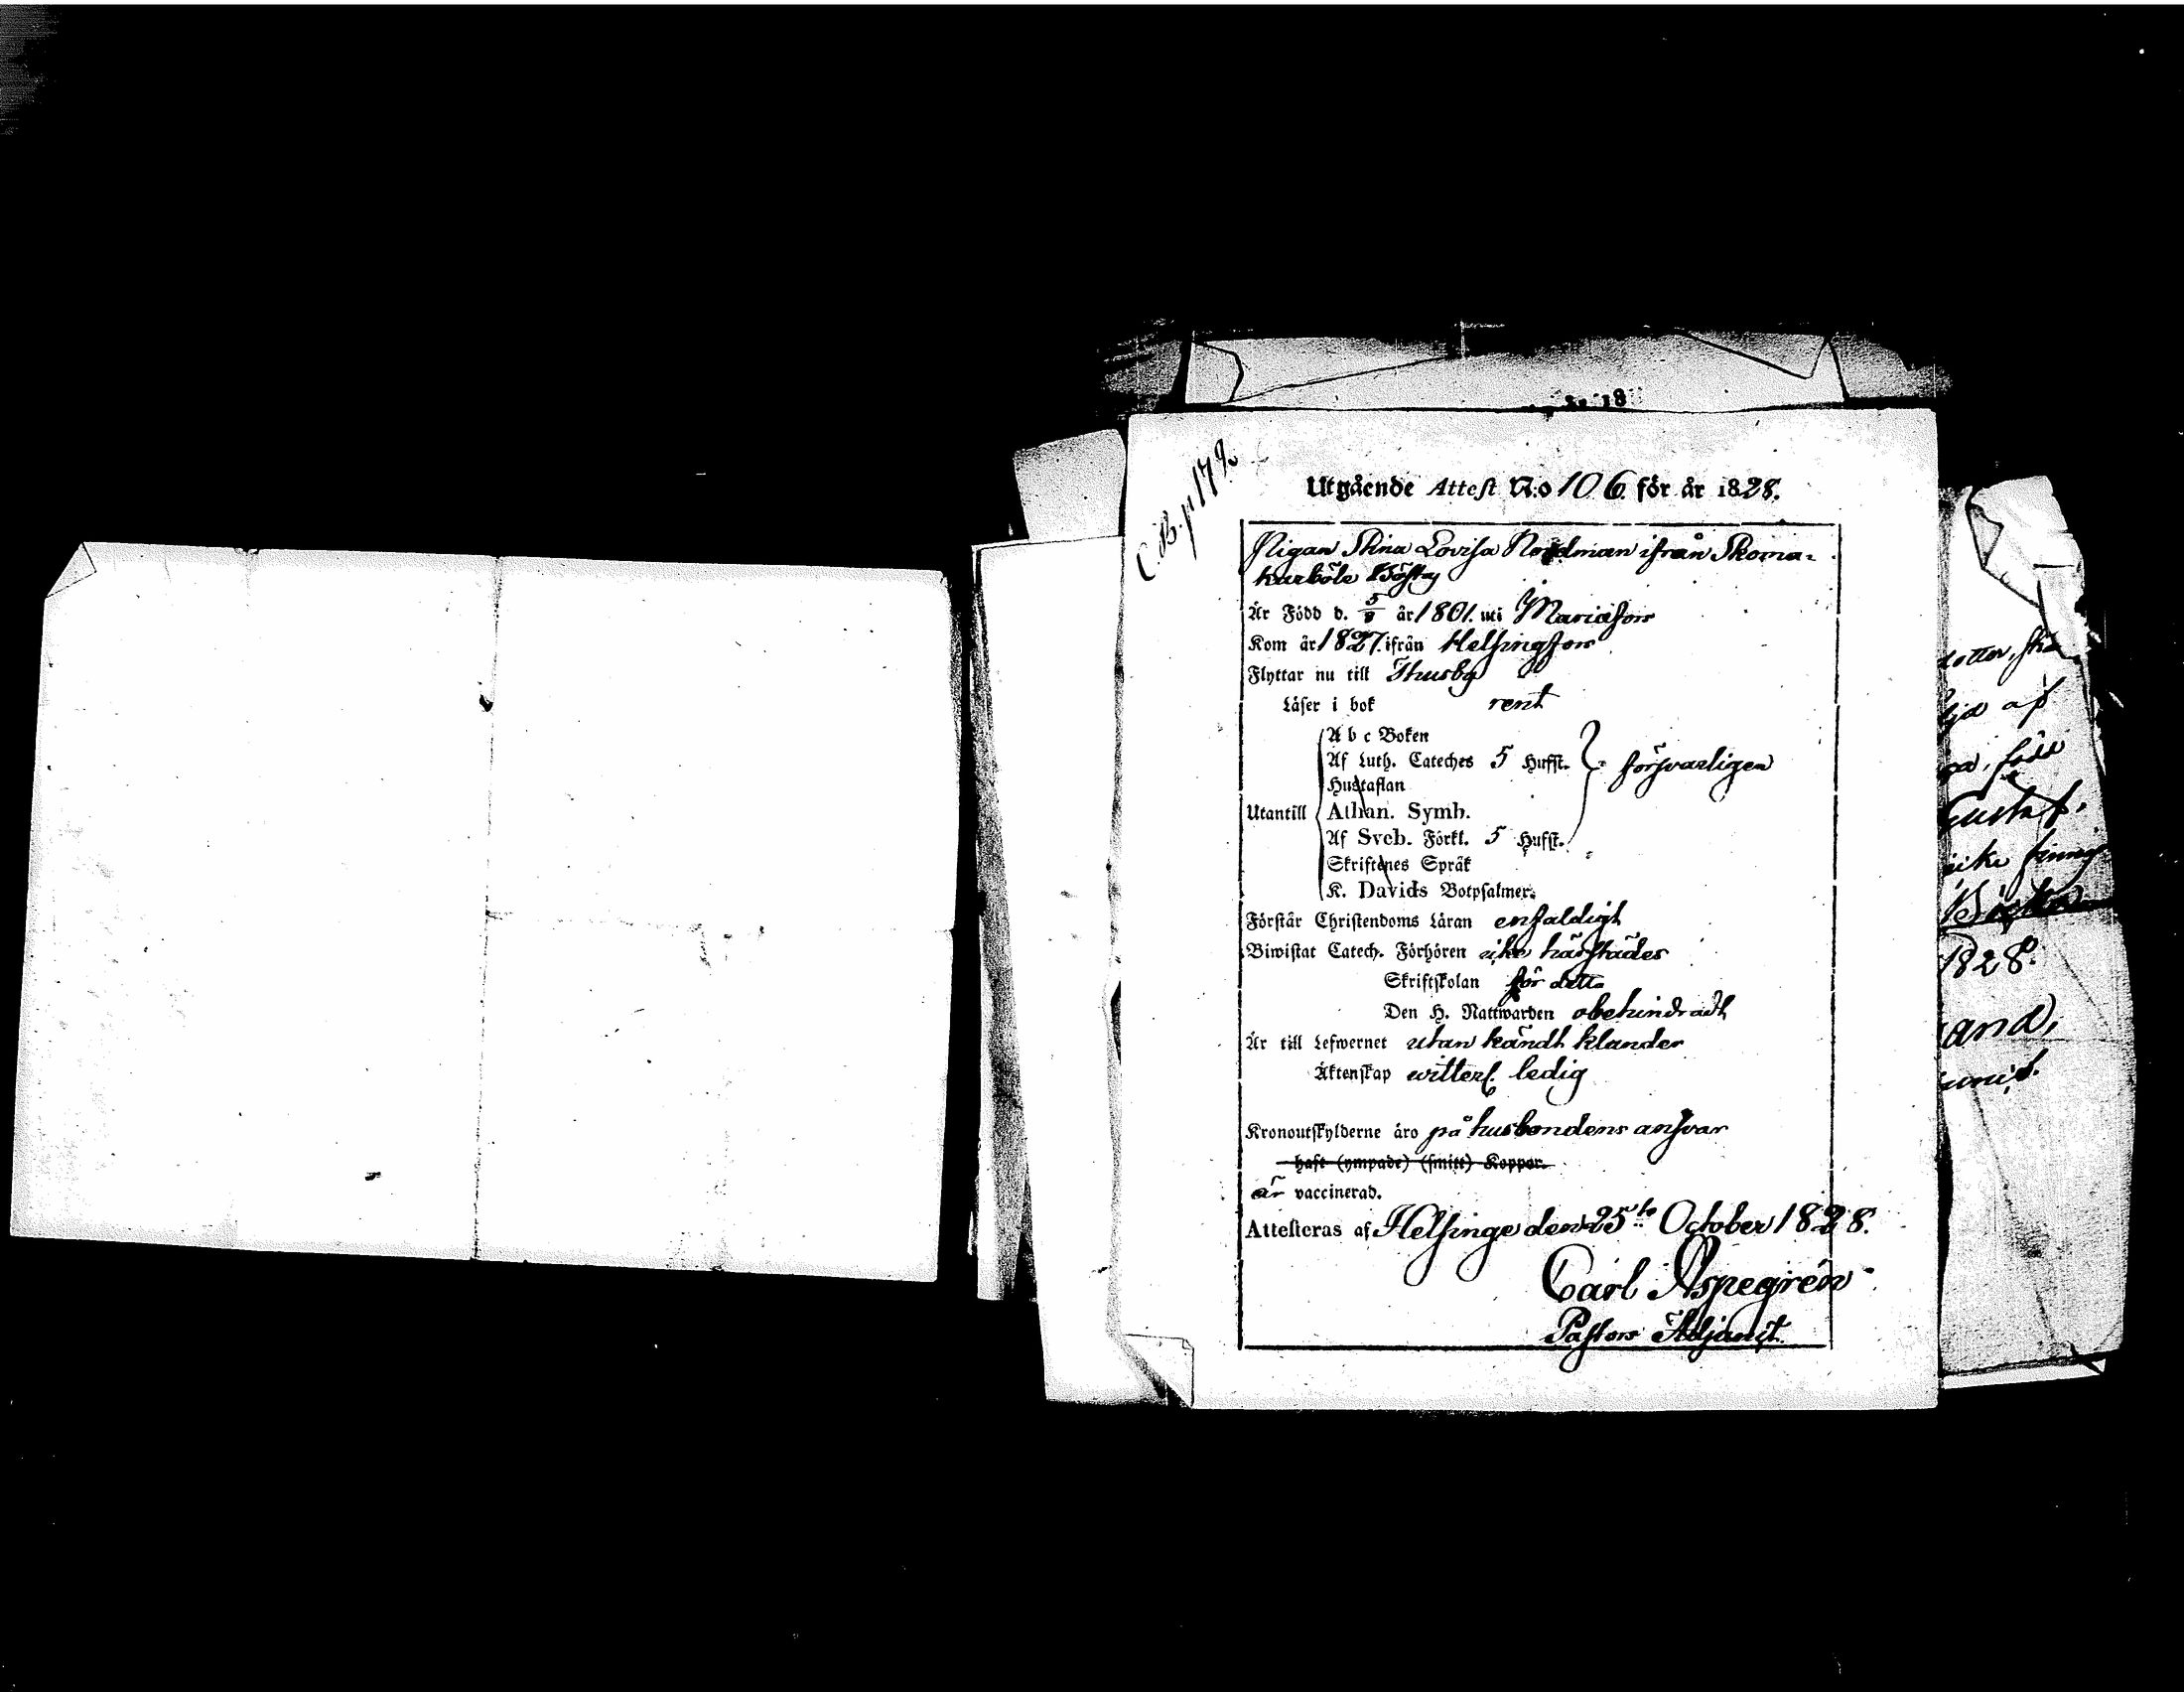 C.B. p 179.
Utgående Attest N:o 106 för år 1828.
Pigan Stina Lovisa Nordman ifrån Skoma=
karböle
Är Född d. 5/8 år 1801. uti Mariæfors
Kom år 1827. ifrån Helsingfors
Flyttar nu till Thusby
Läser i bok rent
A b c Boken
Af Luth. Cateches 5 Hufst. försvarligen
Hustaflan
Utantill Athan. Symb.
Af Sveb. Förkl. 5 Hufst.
Skriftenes Språk
K. Davids Botpsalmer.
Förstår Christendoms Läran enfaldigt
Biwistat Catech. Förhören icke härstädes
Skriftskolan för detta
Den H. Nattwarden obehindradt
Är till Lefwernet utan kändt klander
Äktenskap witterl. ledig
Kronoutskylderne äro på husbondens ansvar
haft (ympade) (smitt) Koppor.
är vaccinerad.
Attesteras af Helsinge den 25te October 1828.
Carl Aspegrén
Pastors Adjunct.
af
Gustaf.
icke
1828.